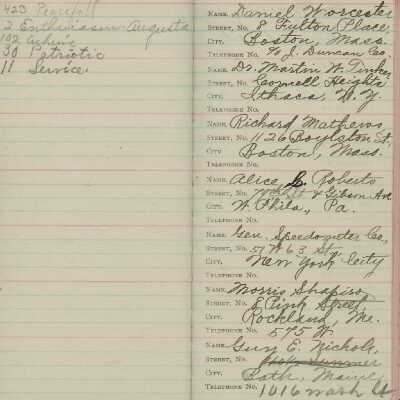 423 Peaceful
2 Enthusiasm - Augusta
102 Asking
30 Patriotic
11 Service
NAME, Daniel Worcester
STREET, NO. 8 Fulton Place,
CITY, Boston, Mass.
TELEPHONE NO. % J. Duncan Co.
NAME, Dr. Martin W. Tinker
STREET, NO. Cornell Heights
CITY, Ithaca, N.Y.
TELEPHONE NO.
NAME, Richard Mathews,
STREET, NO. 1126 Boylston St.
CITY, Boston, Mass.
TELEPHONE NO.
NAME, Alice L. Roberts
STREET, NO. St & Gibson Ave
CITY, W. Phila., Pa.
TELEPHONE NO.
NAME, Gen. Speedometer Co,
STREET, NO. 57 W 63 St.
CITY, New York City
TELEPHONE NO.
NAME, Morris Shapiro,
STREET, NO. Street
CITY, Rockland, Me.
TELEPHONE NO. 575 W
NAME, Guy E. Nichols,
STREET, NO.
CITY, Bath, Maine
TELEPHONE NO. 1016 Wash St